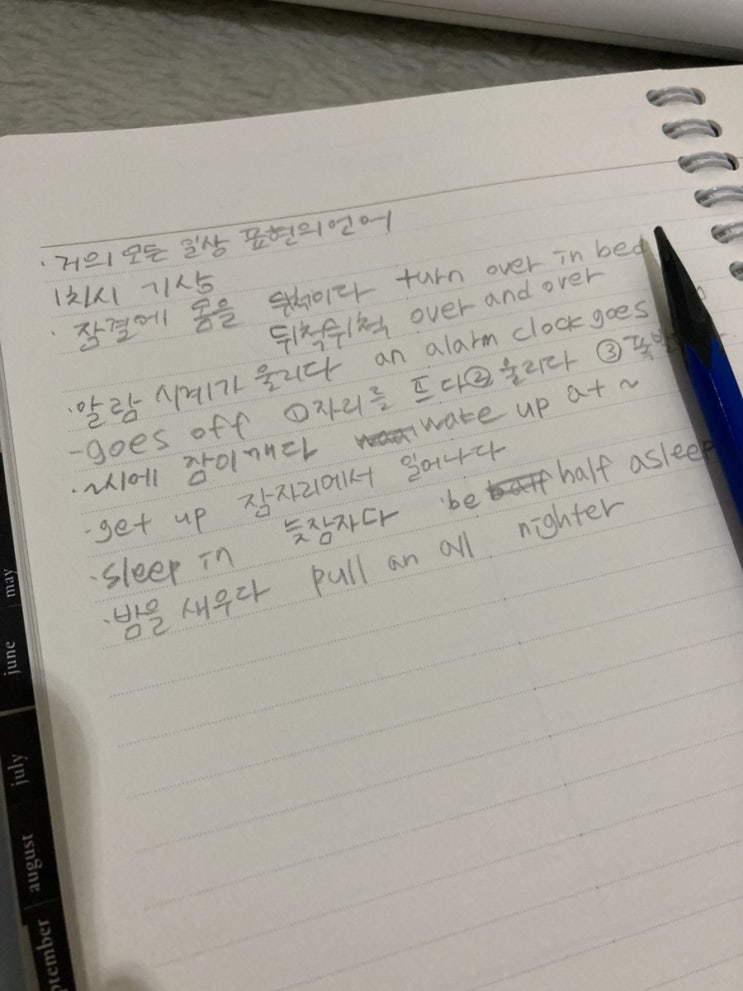 · 거의 모든 일상 표현의 언어
1치시 기상
· 잠결에 몸을 뒤척이다 turn over in bed
뒤척뒤척 over and over
· 알람 시계가 울리다 an alarm clock goes
- goes off ① 자리를 뜨다 ② 울리다 ③
· ~시에 잠이 깨다 wake up at ~
· get up 잠자리에서 일어나다
· sleep in 늦잠자다 be half asleep
· 밤을 새우다 pull an all nighter
may
june
july
august